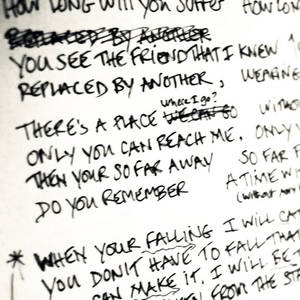 HOW LONG WILL YOU SUFFER HOW LON
REPLACED BY ANOTHER
YOU SEE THE FRIEND THAT I KNEW
REPLACED BY ANOTHER, WEARING
where I go?
THERE'S A PLACE WE CAN GO WITHO
ONLY YOU CAN REACH ME. ONLY
THEN YOUR SO FAR AWAY SO FAR
DO YOU REMEMBER A TIME WI
* WHEN YOUR FALLING I WILL CA
YOU DON'T HAVE TO FALL THA
CAN MAKE IT, I WILL BE
FROM THE ST